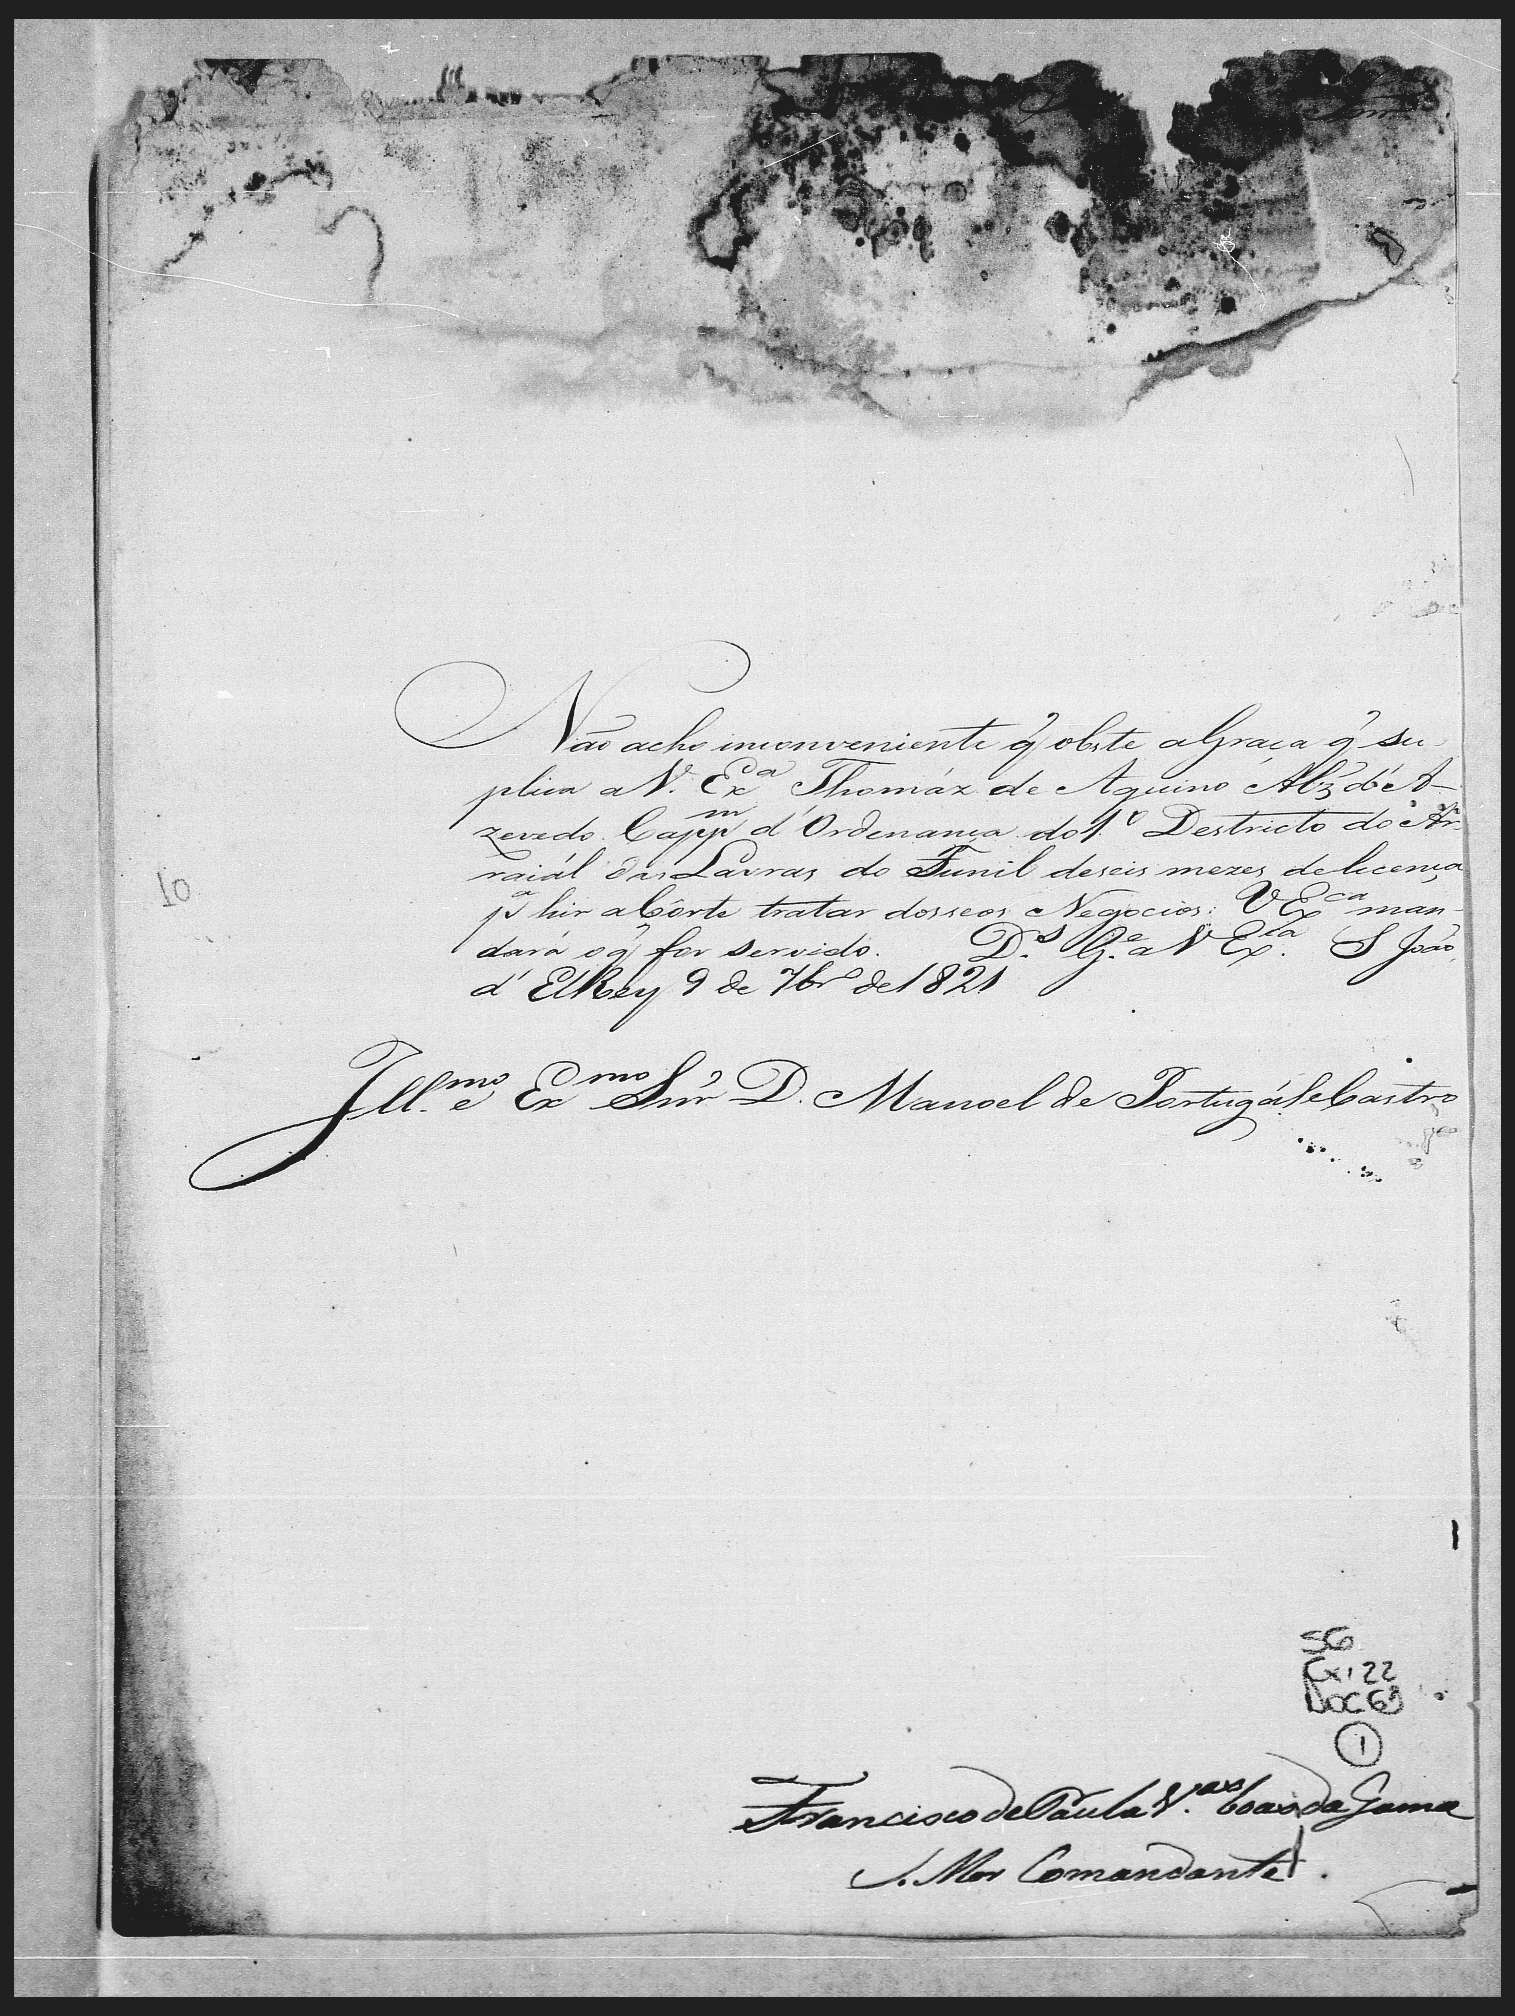 Não acho inconveniente q̃ obste a Graça q̃ su-
plica a V. Exª Thomáz de Aquino Alz̃ d'A-
zevedo Cappm d'Ordenança do 1º Destricto do Ar-
raiál das Lavras do Funil de seis mezes de licença
pª hir a Côrte tratar dos seos Negocios: V Exca man-
dará o q̃ for servido. D.s G.e a V Exca. S João
d'ElRey 9 de 7bro de 1821
Ill.mo e Exmo Snr̃ D. Manoel de Portugál e Castro
10
SG
Cx. 22
Doc 69
1
Francisco de Paula V.as boas da Gama
S. Mor Comandante